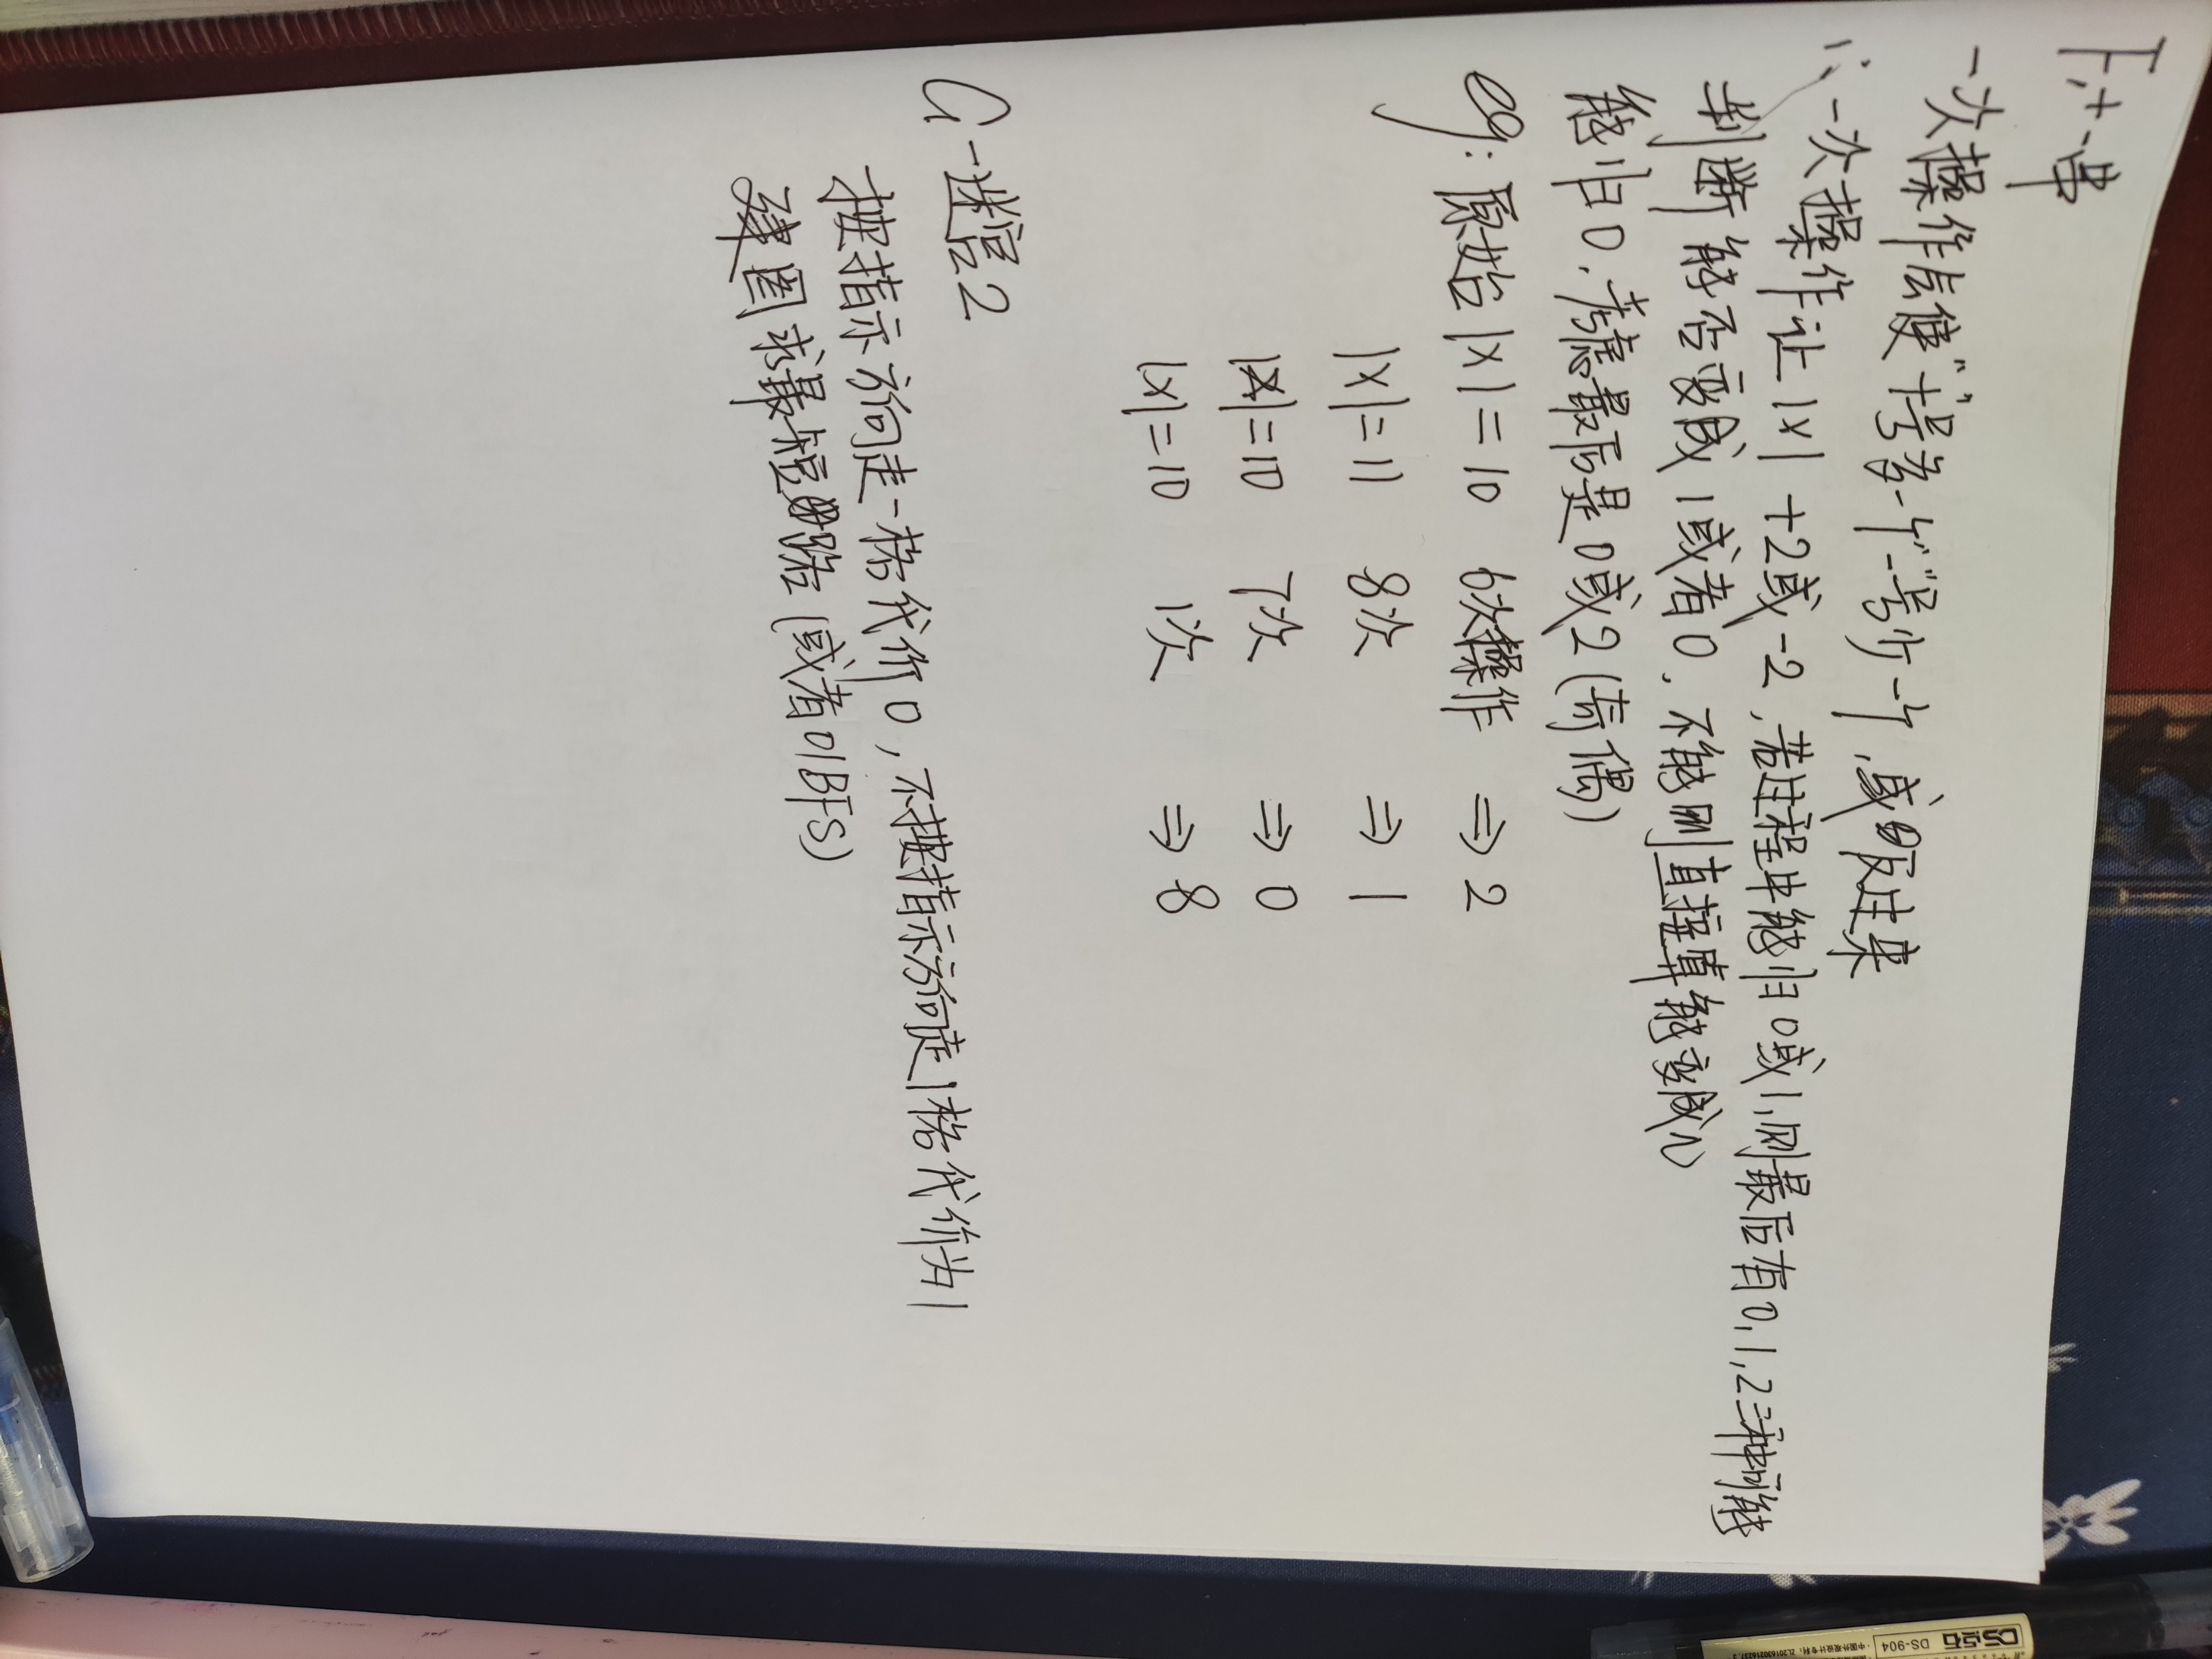 F:+-串
一次操作会使"+"号多一个"-"号少一个,或反过来
∴一次操作让|x|+2或-2,若过程中能归0或1,则最后有0,1,2三种可能
判断能否变成1或者0,不能则直接算能变成几
能归0,考虑最后是0或2(奇偶)
eg:原始|x|=10 6次操作 ⇒ 2
|x|=11 8次 ⇒ 1
|x|=10 7次 ⇒ 0
|x|=10 1次 ⇒ 8
G-迷宫2
按指示方向走一格代价0,不按指示方向走1格代价为1
建图求最短路(或者01BFS)
DS点石 DS-904